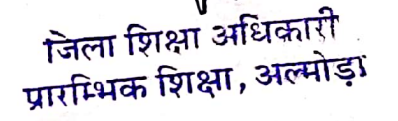 जिला शिक्षा अधिकारी
प्रारम्भिक शिक्षा, अल्मोड़ा